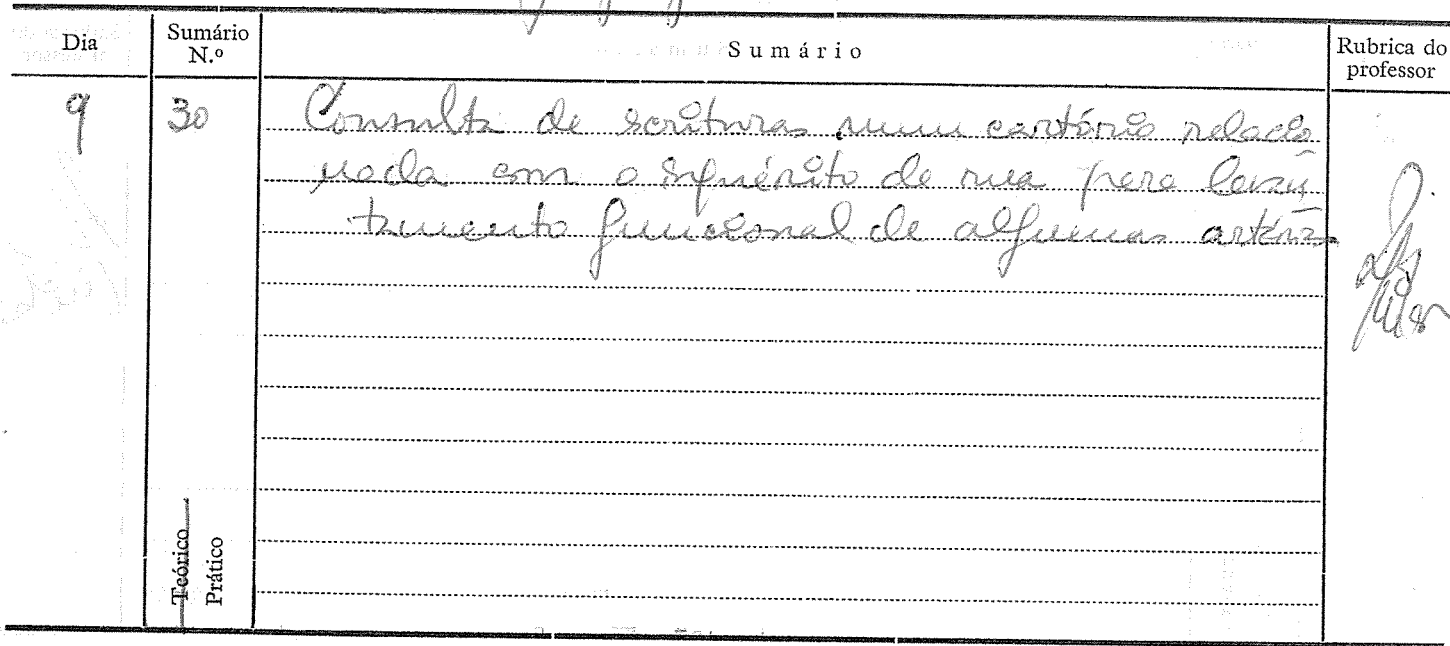 Dia
Sumário N.º
Sumário
Rubrica do professor
9
30
Consulta de scrituras num cartório relacio
nada com o inquérito de rua para levan
tamento funcional de algumas artérias
Teórico
Prático